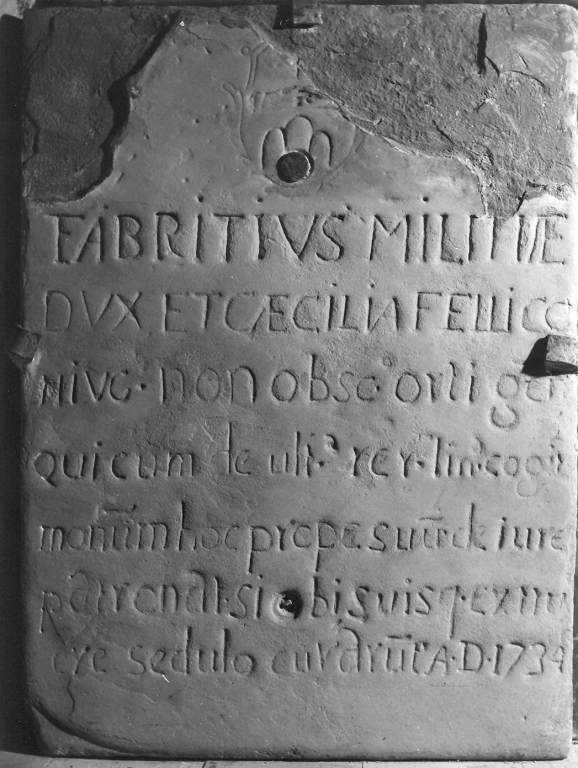 FABRITIVS MILITIÆ
DVX ET CÆCILIA FELLICC
NIVG· non obsc° orti gen
qui cum de ult.ª rer· lim: cogit
monūm hoc prope suū de iure
patronat· sibi suis q· ex mu
ere sedulo curarūt A·D·1734